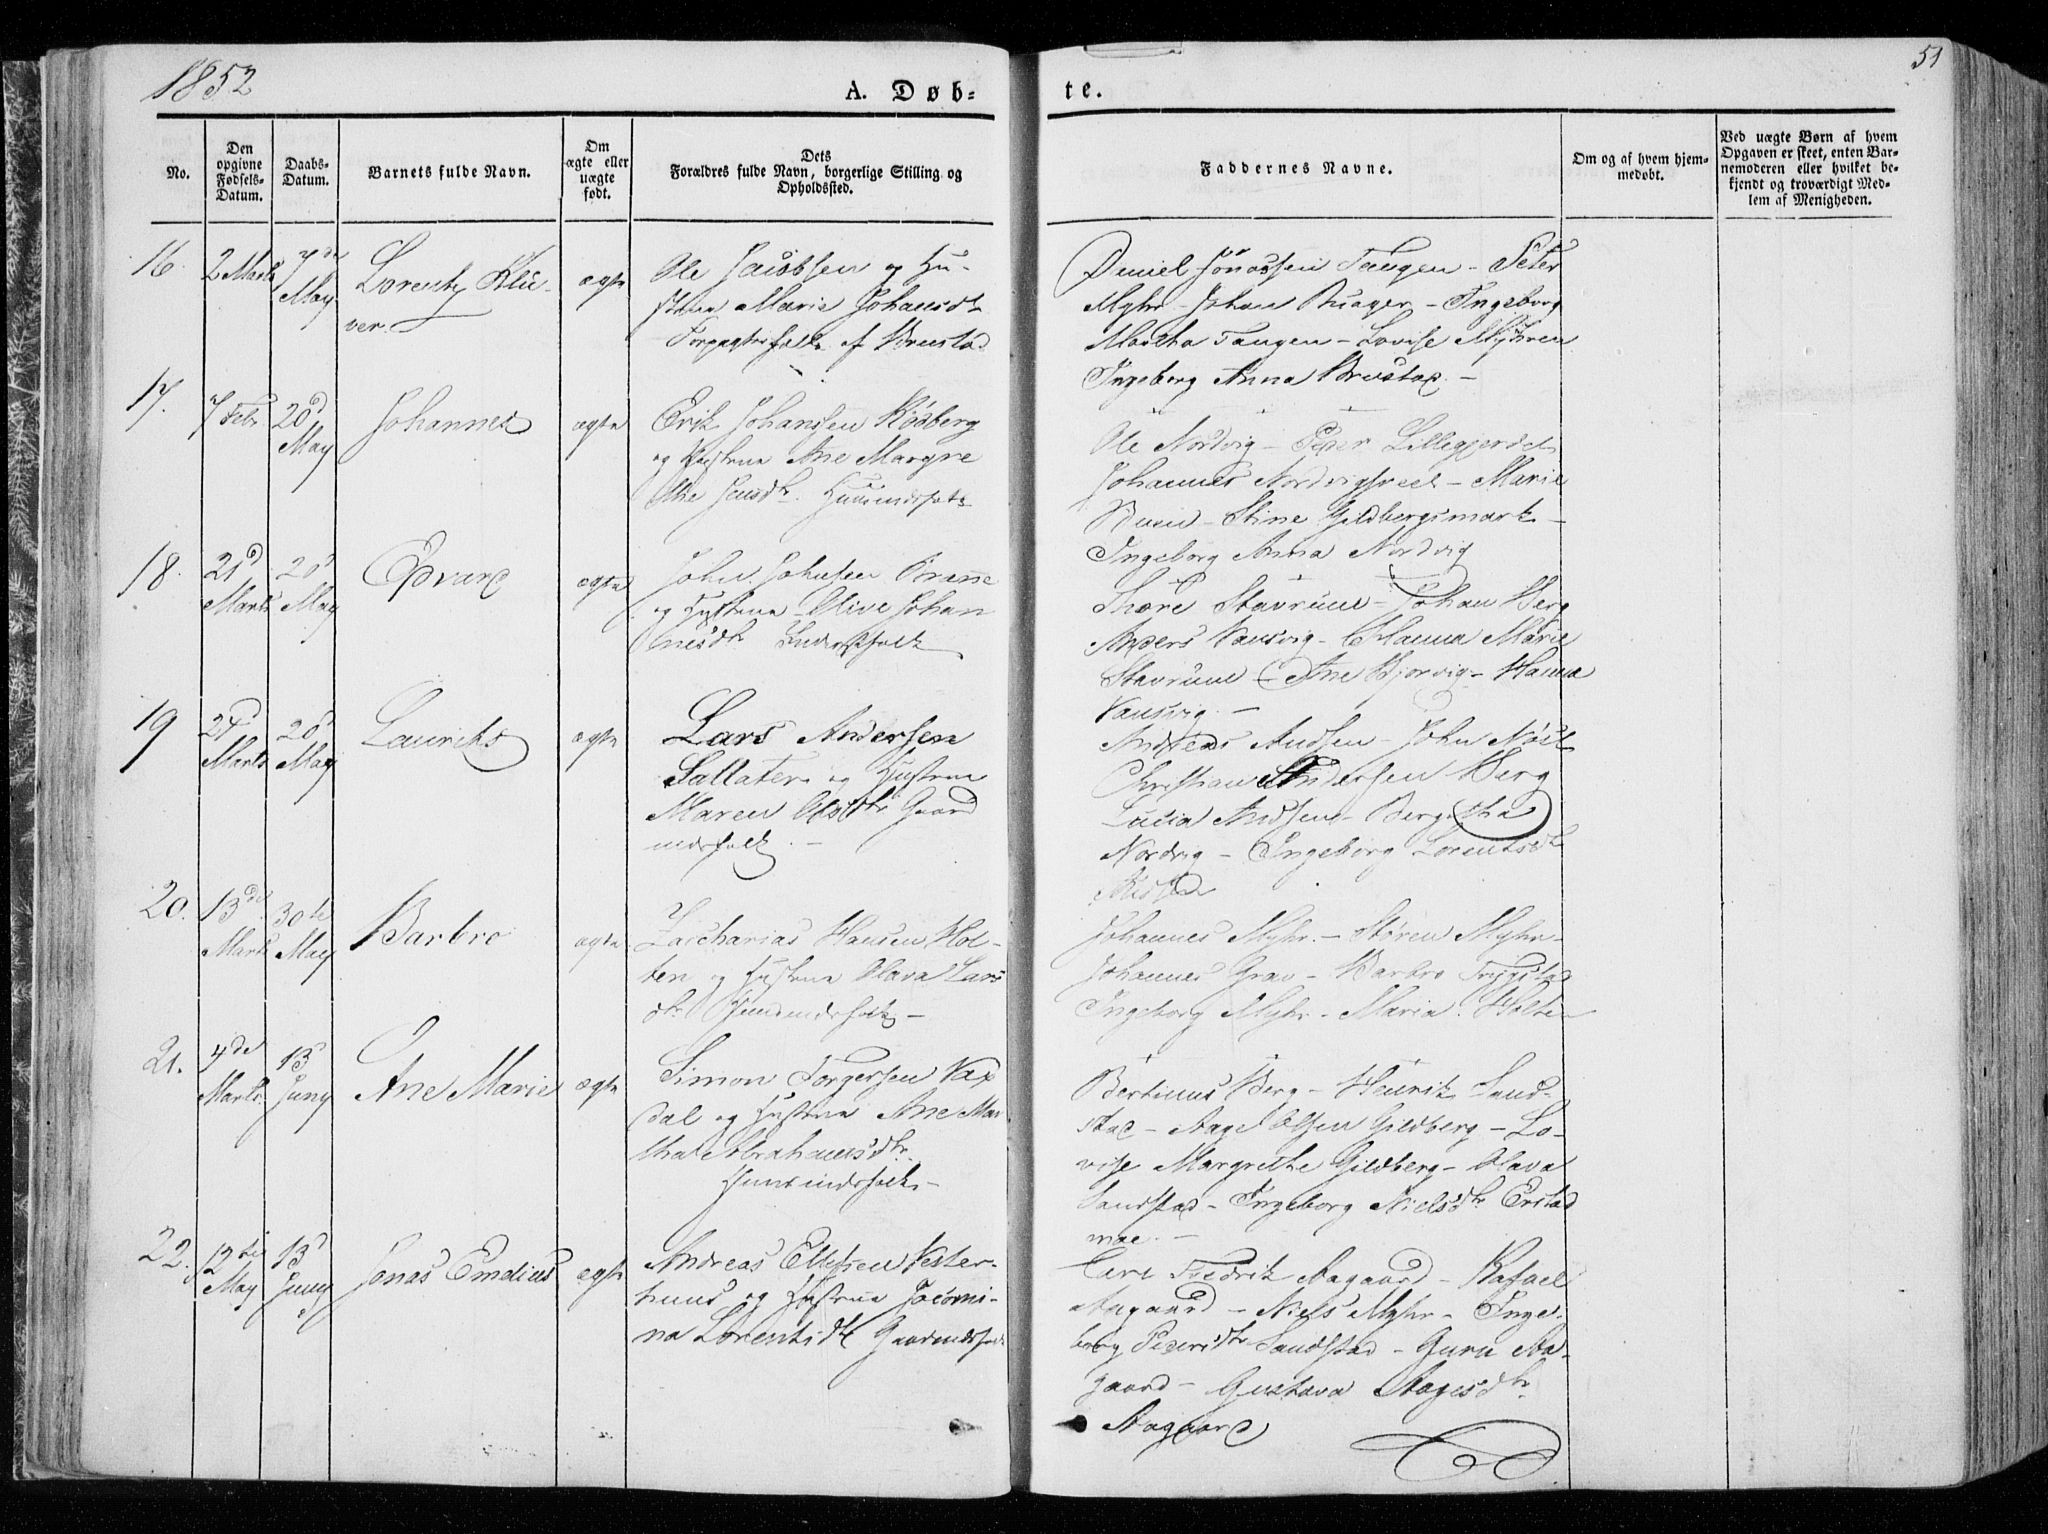 1852
A. Døb-
te.
51
No.
Den opgivne Fødsels-Datum.
Daabs-Datum.
Barnets fulde Navn.
Om ægte eller uægte født.
Dets Forældres fulde Navn, borgerlige Stilling og Opholdssted.
Faddernes Navne.
Om og af hvem hjem-medøbt.
Ved uægte Børn af hvem Opgaven er skeet, enten Bar-nemoderen eller hvilket be-kjendt og troværdigt Med-lem af Menigheden.
16.
2 Marts
7de May
Lorents Klü-
ver.
ægte
Ole Jacobsen og Hu-
strue Marie Johansdtr
Forpagterfolk af
Daniel Jonassen Tangen - Peter
Myhr - Johan - Ingeborg
Martha Tangen - Lovise Myhren
Ingeborg Anna
17.
7 Febr
20d May
Johannes
ægte
Erik Johansen Kösberg
og Hustrue Ane Margre
the Jensdtr. Huusmandsfolk
Ole Nordvig - Peder Lillegjerdet
Johannes - Marie
Stine Gildbergsmark -
Ingeborg Anna Nordvig
18.
21d Marts
20d May
Edvard
ægte
John Johnsen
og Hustrue Olive Johan
nesdtr Inderstfolk
Thore Stavrune - Johan Berg
Anders Vansvig - Hanna Marie
Stavrune - Ane - Hanna
Vansvig. -
19
24d Marts
20d May
Laurits
ægte
Lars Andersen
Sallater og Hustrue
Maren Olsdtr Gaard
mandsfolk. -
Andreas Andsen - John
Christian Andersen Berg
Lucia Andsen - Bergitha
Nordvig - Ingeborg Lorentsdtr
20.
13de Marts
30te May
Barbro
ægte
Zacharias Hansen Hol-
ten og Hustrue Olava Lars
dtr Huusmandsfolk -
Johannes Myhr. - Sören Myhr -
Johannes Grav - Barbro
Ingeborg Myhr - Maria Holten
21.
4de Marts
13d Juny
Ane Marie
ægte
Simon Torgersen Vad
dal og Hustrue Ane Mar
tha Abrahamsdtr.
Huusmandsfolk -
Bertinus Berg - Henrik Sand-
stad - Aage Olsen Gildberg - Lo-
vise Margrethe Gildberg - Olava
Sandstad - Ingeborg Nielsdtr
22.
12te May
13d Juny
Jonas Emelius
ægte
Andreas Ellefsen Vester-
huus og Hustrue Jacomi-
na Lorentsdtr Gaardmandsfolk
Carl Fredrik Aagaard - Rafael
Aagaard - Niels Myhr - Inge-
borg Pedersdtr Sandstad - Guru Aa-
gaard - Gustava Aagesdtr.
Aagaard